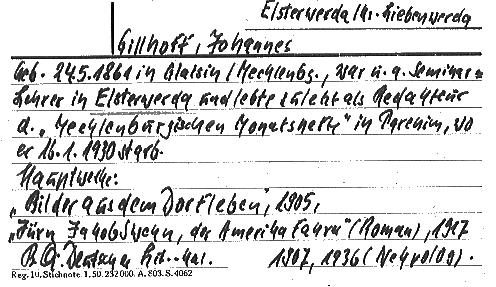 Elsterwerda Krs. Liebenwerda
Gillhoff, Johannes
Geb. 24.5.1861 in Glaisin / Mecklenbg., war u. a. Seminar-
Lehrer in Elsterwerda und lebte zuletzt als Redakteur
d. „Mecklenburgischen Monatshefte" in Parchim, wo
er 16.1.1930 starb.
Hauptwerke:
„Bilder aus dem Dorfleben", 1905,
„Jürn Jakob Swehn, der Amerikafahrer" (Roman), 1917
Deutscher Lit.-Kal. 1907, 1936 (Nekrolog).
Reg. 10. Stichnote. 1. 50. 232000. A. 803. S. 4062